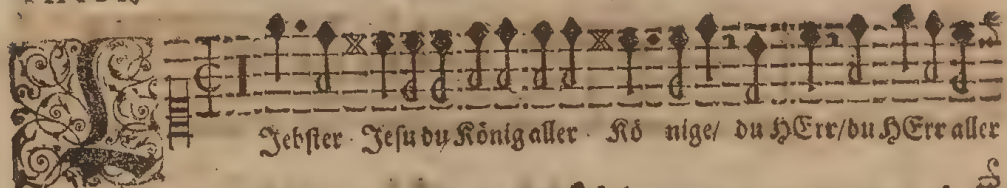 LJebster Jesu du König aller Kö nige/ du HErr/du HErr aller